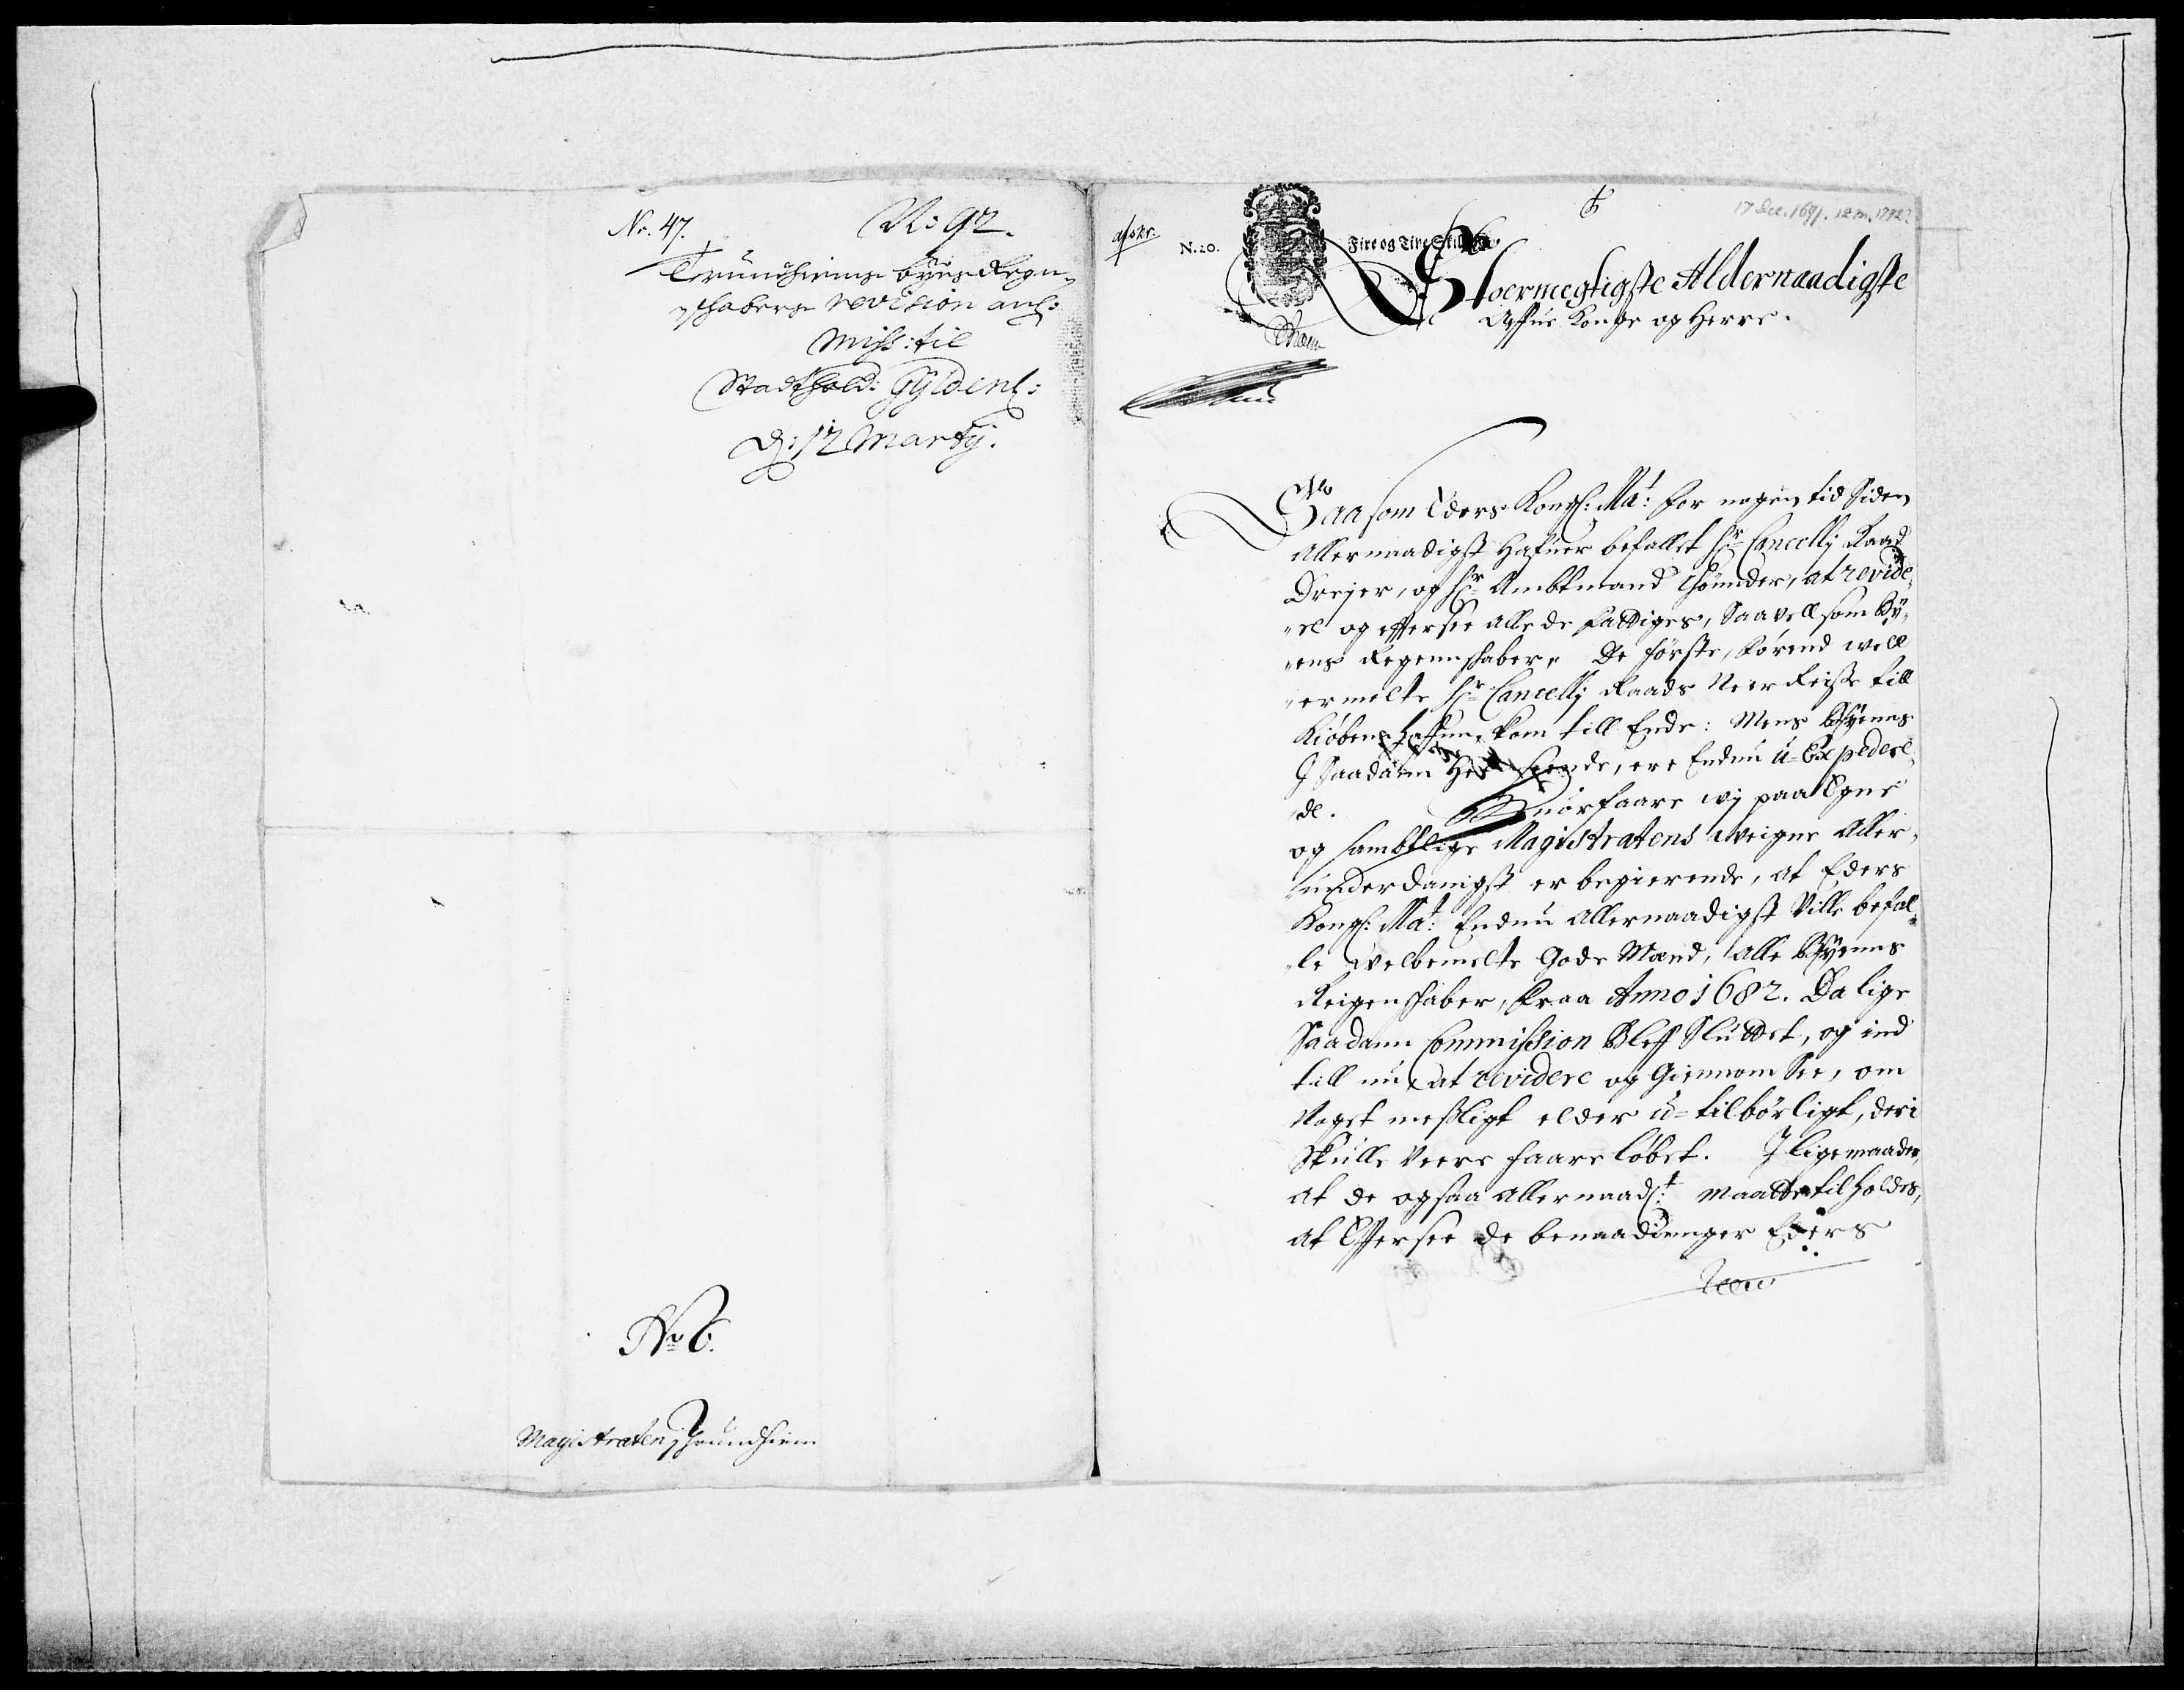 Nr. 47.
N: 92.
Trundhiems byes Regn¬
schabers revision anl:
Miss: til
Stadthold: Gyldenl:
D: 12 Martij.
No 6.
Magistraten j Thrundhiem
afskr.
N. 20.
Fire og Tive Skilling
17 Dec. 1691. 12 m. 1792?
Stoermegtigste Aldernaadigste
Arffue Konge og Herre.
Saasom Eders Kongl: Ma:t for nogen tid siden
Allernaadigst hafuer befallet Hr Cancellj Raad
Drejer, og Hr Ambtmand Tønnder, at revide¬
re og effersee alle de fattiges, saavell som By¬
ens Regennschaber. De første, førend well
ermelte Hr Cancellj Raads Neer Reisse till
Kiøbenhaffun, kom till Ende: Mens Byenns
J saadann Hen seende, ere Endnu u-Expedere¬
de. Huorfaare wj paa Egne
og samptlige Magistratens weigne Aller¬
underdanigst er begierende, at Eders
Kongl: Ma:t Endnu Allernaadigst Ville befal¬
le welbemelte Gode Mænd, alle Byenns
Reigenschaber, fraa Anno 1682. Da lige
Saadann Commission Bleff Sluttet, og ind
till nu, at revidere og Giennom See, om
Noget misligt eller u-tilbørligt, deri
Skulle Veere faareløbet. J ligemaade,
at de ogsaa allernaadl:t maatte tilholdes,
at Effersee de benaadinger Eders